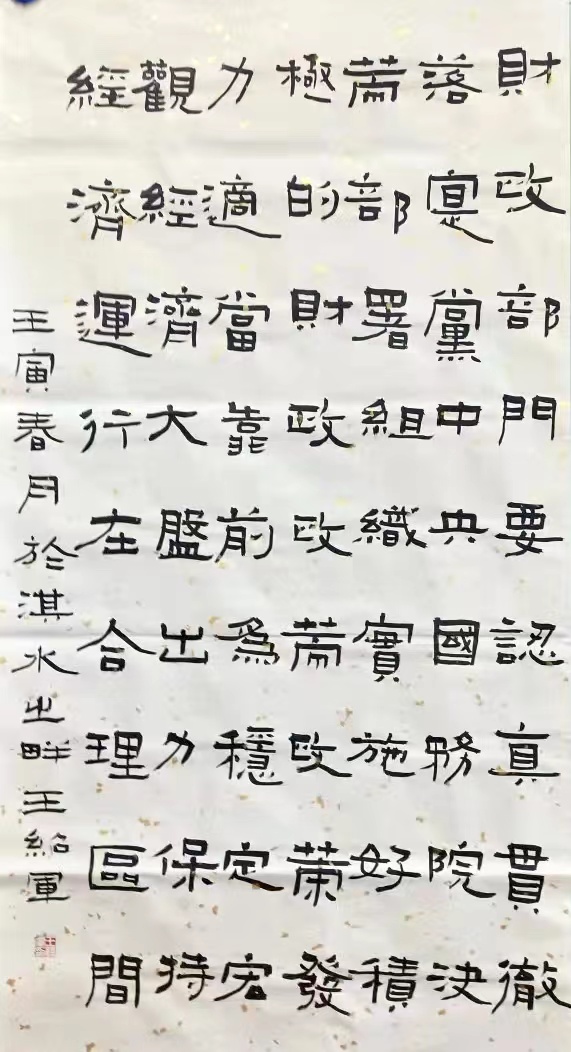 財政部門要認真貫徹
落寔黨中央國務院決
策部署組織實施好積
極的財政政策政策發
力適當靠前為穩定宏
觀經濟大盤出力保持
經濟運行在合理區間
壬寅春月於淇水之畔王紹軍